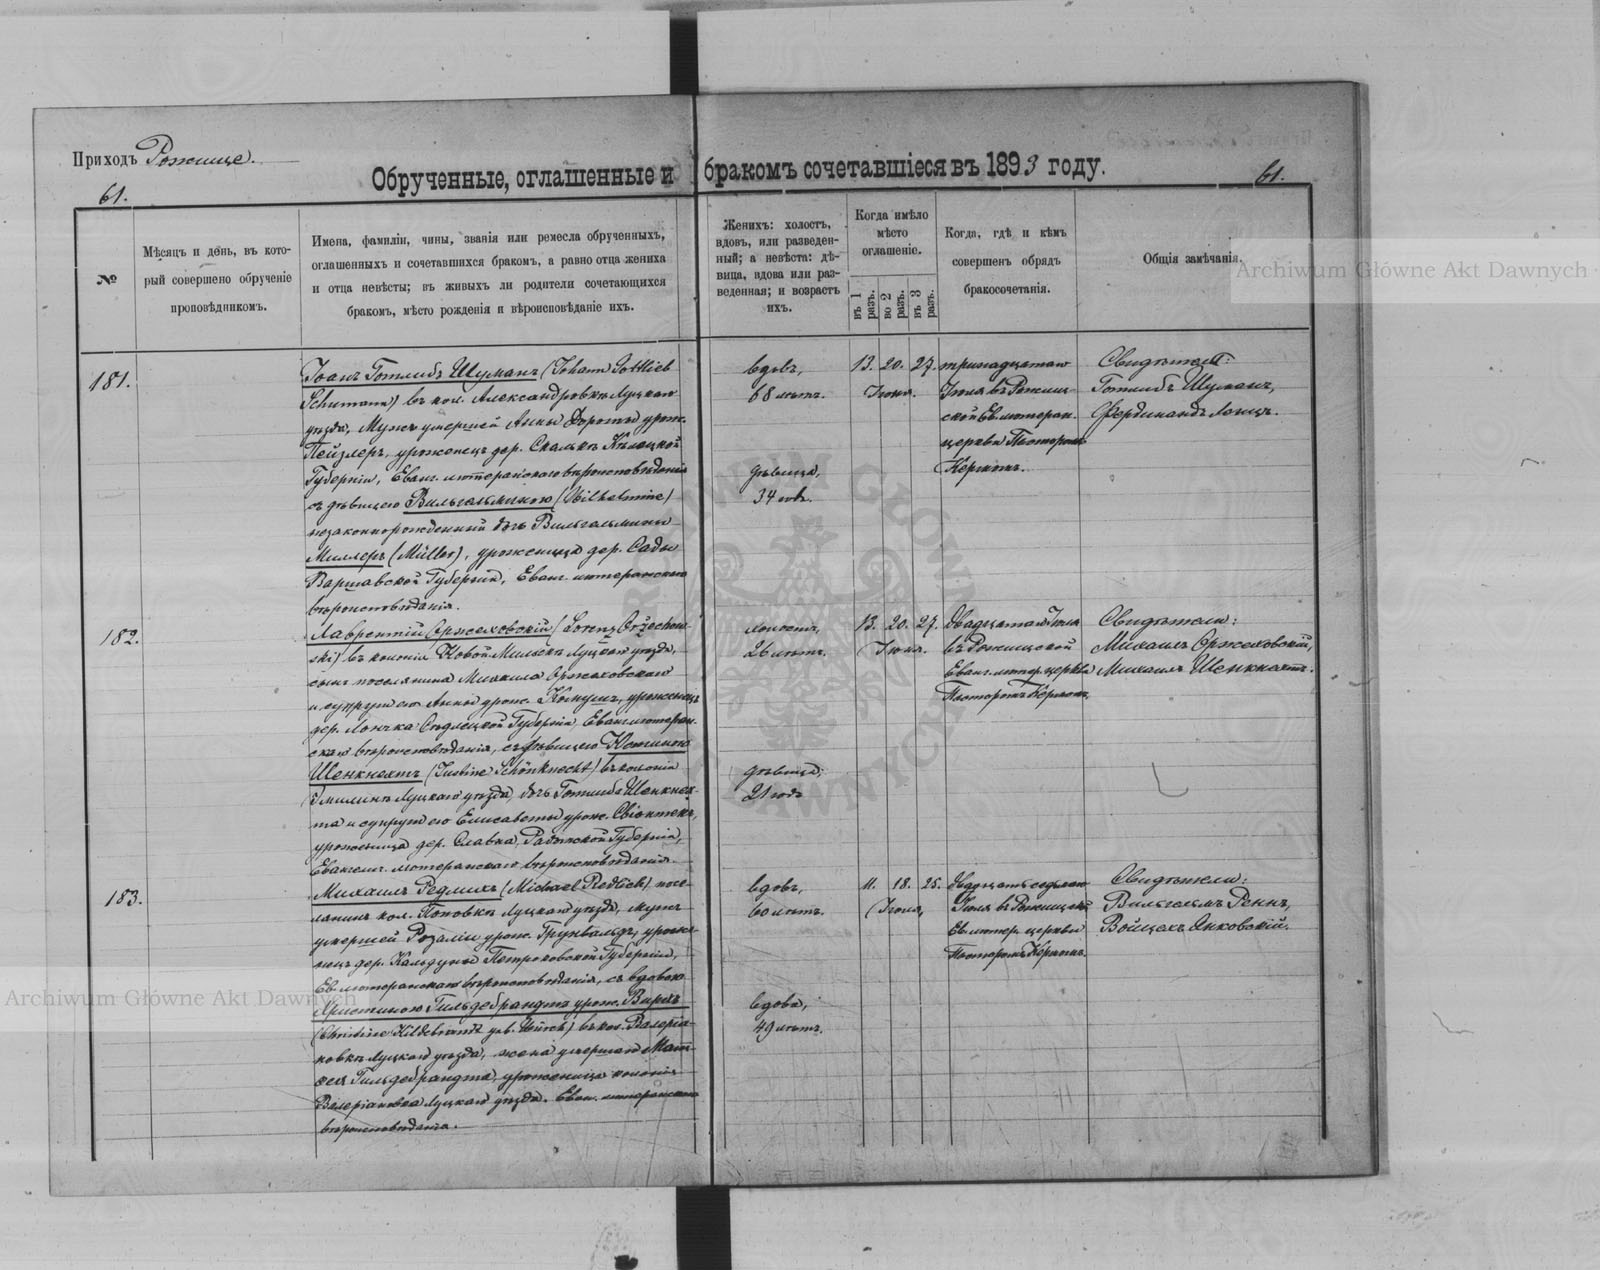 Приходъ Рожище.
61.
Обрученные, оглашенные и бракомъ сочетавшіеся въ 1893 году.
61.
№
Мѣсяцъ и день, въ кото-
рый совершено обрученіе
проповѣдникомъ.
Имена, фамиліи, чины, званія или ремесла обрученныхъ,
оглашенныхъ и сочетавшихся бракомъ, а равно отца жениха
и отца невѣсты; въ живыхъ ли родители сочетающихся
бракомъ, мѣсто рожденія и вѣроисповѣданіе ихъ.
Женихъ: холостъ,
вдовъ, или разведен-
ный; а невѣста: дѣ-
вица, вдова или раз-
веденная; и возрастъ
ихъ.
Когда имѣло
мѣсто
оглашеніе.
въ 1 разъ.
во 2 разъ.
въ 3 разъ.
Когда, гдѣ и кѣмъ
совершенъ обрядъ
бракосочетанія.
Общія замѣчанія.
Archiwum Główne Akt Dawnych
181.
Іоанъ Готлибъ Шуманъ (Johann Gottlieb
Schumann) въ кол. Александровкѣ Луцкаго
уѣзда, Мужъ умершей Анны Доротеи урож.
Пейзлеръ, уроженецъ дер. Кѣлецкой
Губерніи, Еванг. лютеранскаго вѣроисповѣданія
съ дѣвицею Вильгельминою (Wilhelmine)
незаконнорожденный дочь Вильгельмины
Миллеръ (Müller), уроженица дер. Сады
Варшавской Губерніи, Еванг. лютеранскаго
вѣроисповѣданія.
вдовъ,
68 лѣтъ.
дѣвица,
34 годъ.
13. 20. 27.
Іюня.
тринадцатаго
Іюля въ Рожищ-
ской Ев. лютеран.
церкви Пасторомъ
Кернomъ.
Свидѣтели:
Готлибъ Шуманъ,
Фердинандъ
182.
Лаврентій Оржеховскій (Lorenz Orzechow-
ski) въ колоніи Новой Мильскъ Луцкаго уѣзда,
сынъ поселянина Михаила Оржеховскаго
и супруги его Анны урож. уроженецъ
дер. Лончка Сѣдлецкой Губерніи Еванг. лютеран-
скаго вѣроисповѣданія, съ дѣвицею Юстиною
Шенкнехтъ (Justine Schönknecht) въ колоніи
Эмилинъ Луцкаго уѣзда, дочь Готлиба Шенкнех-
та и супруги его Елисаветы урож.
уроженица дер. Славка, Радомской Губерніи,
Евангел. лютеранскаго вѣроисповѣданія.
холостъ,
26 лѣтъ.
дѣвица,
21 годъ
13. 20. 27.
Іюня.
Двадцатаго Іюля
въ Рожищской
Еванг. лютер. церкви
Пасторомъ
Свидѣтели:
Михаилъ Оржеховскій,
Михаилъ Шенкнехтъ.
183.
Михаилъ Редлихъ (Michael Redlich) посе-
лянинъ кол. Поповкѣ Луцкаго уѣзда, мужъ
умершей Розаліи урож. Грунвальдъ, уроже-
нецъ дер. Кальдуны Петроковской Губерніи,
Ев. лютеранскаго вѣроисповѣданія, съ вдовою
Христиною Гильдебрандтъ урож. Вирхъ
(Christine Hildebrandt geb. Würch) въ кол. Валерiа-
новкѣ Луцкаго уѣзда, жена умершаго Мат-
вея Гильдебрандта, уроженица колоніи
Валеріановка Луцкаго уѣзда. Еван. лютеранскаго
вѣроисповѣданія.
вдовъ,
60 лѣтъ.
вдова,
49 лѣтъ.
11. 18. 25.
Іюля,
Двадцать седьмаго
Іюля въ Рожищской
Ев. лютер. церкви
Пасторомъ
Свидѣтели:
Вильгельмъ Реннъ,
Войцехъ Янковскій.
Archiwum Główne Akt Dawnych
ARCHIWUM GŁÓWNE AKT DAWNYCH